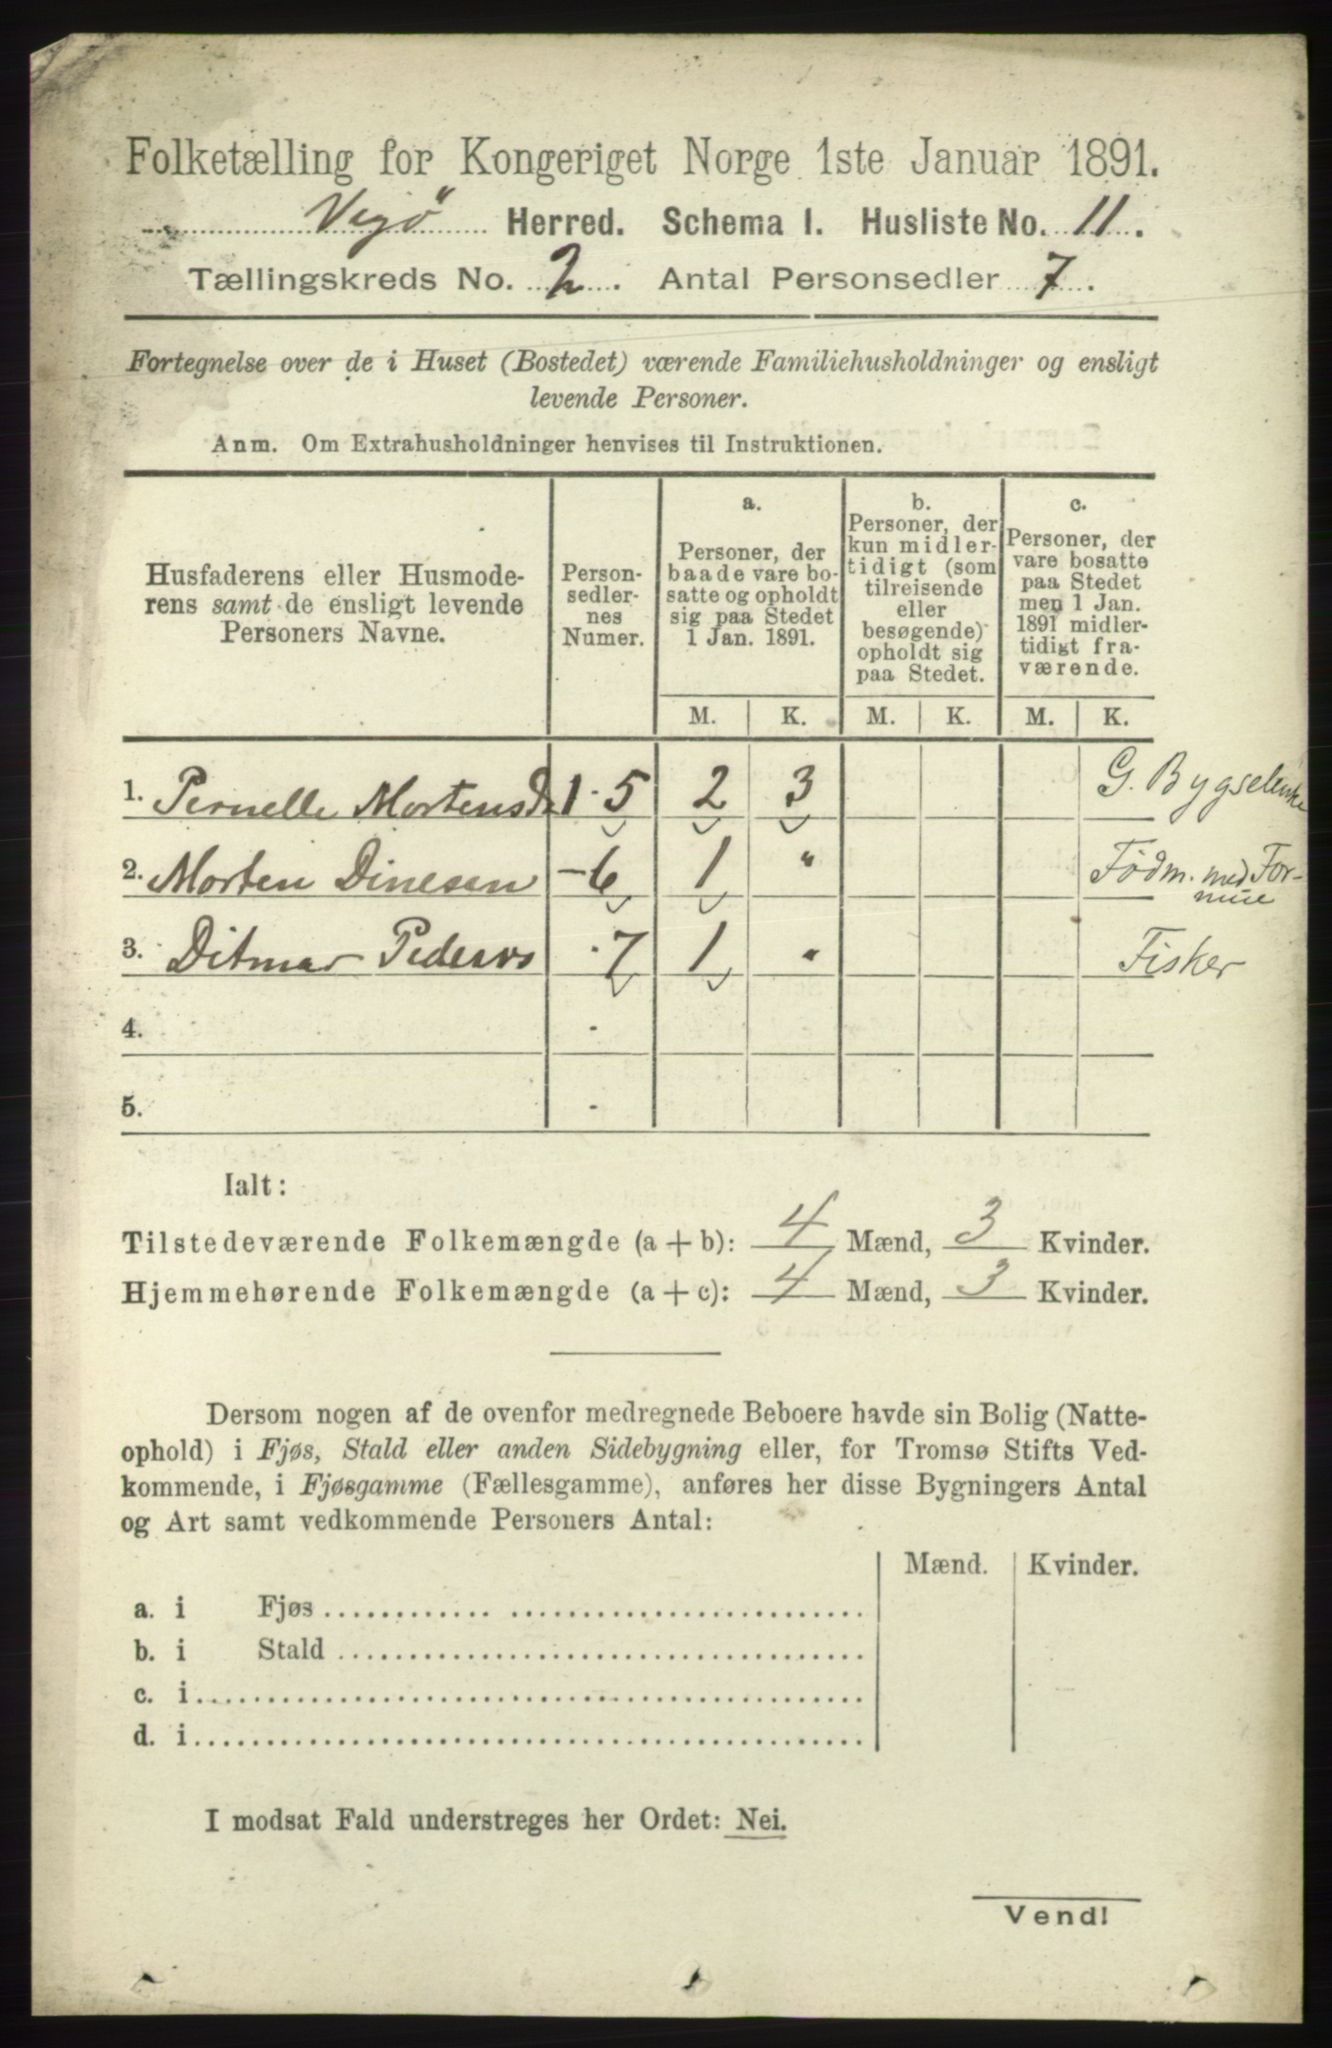 Folketælling for Kongeriget Norge 1ste Januar 1891.
Vegø Herred. Schema I. Husliste No. 11.
Tællingskreds No. 2. Antal Personsedler 7.
Fortegnelse over de i Huset (Bostedet) værende Familiehusholdninger og ensligt
levende Personer.
Anm. Om Extrahusholdninger henvises til Instruktionen.
Husfaderens eller Husmode-
rens samt de ensligt levende
Personers Navne.
Person-
sedler-
nes
Numer.
a.
Personer, der
baade vare bo-
satte og opholdt
sig paa Stedet
1 Jan. 1891.
b.
Personer, der
kun midler-
tidigt (som
tilreisende
eller
besøgende)
opholdt sig
paa Stedet.
c.
Personer, der
vare bosatte
paa Stedet
men 1 Jan.
1891 midler-
tidigt fra-
værende.
M. K. M. K. M. K.
1. Pernelle Mortensd 1 - 5 2 3 G. Bygselenke
2. Morten Dinesen - 6 1 " Fødm. med For-
mue
3. Ditmar Peders - 7 1 " Fisker
4. -
5. -
Ialt:
Tilstedeværende Folkemængde (a + b): 4 Mænd, 3 Kvinder.
Hjemmehørende Folkemængde (a + c): 4 Mænd, 3 Kvinder.
Dersom nogen af de ovenfor medregnede Beboere havde sin Bolig (Natte-
ophold) i Fjøs, Stald eller anden Sidebygning eller, for Tromsø Stifts Ved-
kommende, i Fjøsgamme (Fællesgamme), anføres her disse Bygningers Antal
og Art samt vedkommende Personers Antal:
Mænd. Kvinder.
a. i Fjøs
b. i Stald
c. i
d. i
I modsat Fald understreges her Ordet: Nei.
Vend!